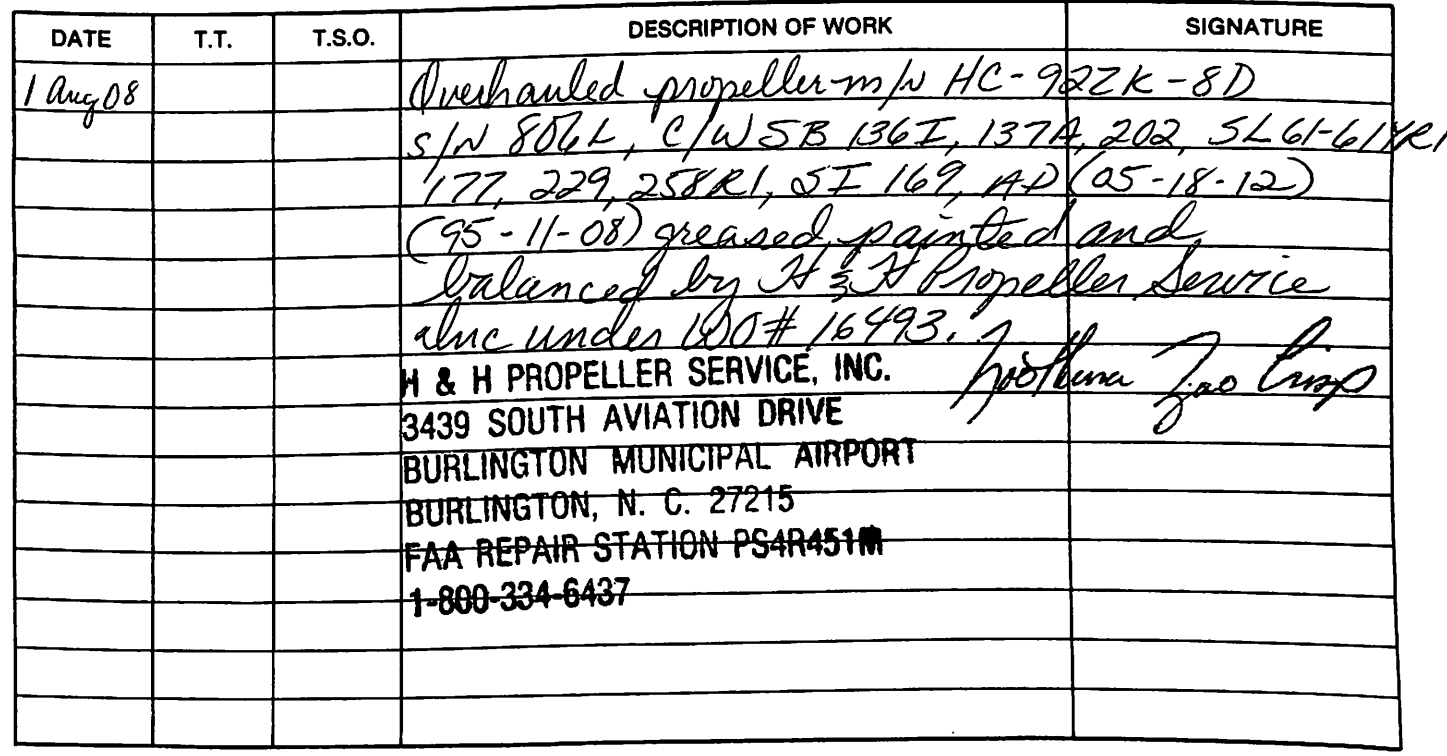 DATE T.T. T.S.O. DESCRIPTION OF WORK SIGNATURE
1 Aug 08 Overhauled propeller m/N HC-92ZK-8D
S/N 806L, C/W SB 136I, 137A, 202, SL 61-61YR1
177, 229, 258R1, SI 169, AD (05-18-12)
(95-11-08) greased, painted and
balanced by H & H Propeller Service
Inc under WO# 16493.
H & H PROPELLER SERVICE, INC. Crisp
3439 SOUTH AVIATION DRIVE
BURLINGTON MUNICIPAL AIRPORT
BURLINGTON, N. C. 27215
FAA REPAIR STATION PS4R451M
1-800-334-6437